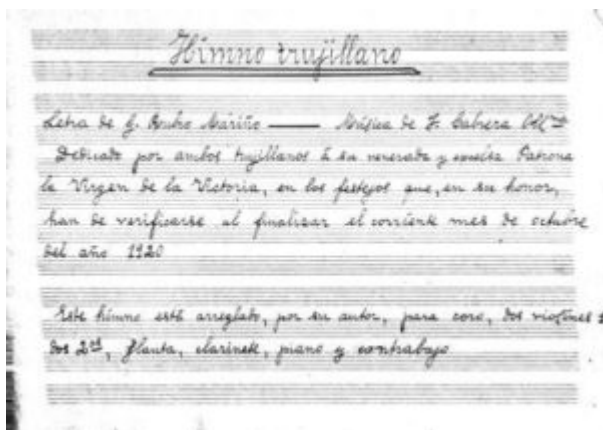 Himno trujillano
Letra de G. Rubio Mariño —— Música de F. Cabrera
Dedicado por ambos trujillanos á su venerada y excelsa Patrona
la Virgen de la Victoria, en los festejos que, en su honor,
han de verificarse al finalizar el corriente mes de octubre
del año 1920
Este himno está arreglado, por su autor, para coro, dos violines 1
dos 2ᵒˢ, flauta, clarinete, piano y contrabajo